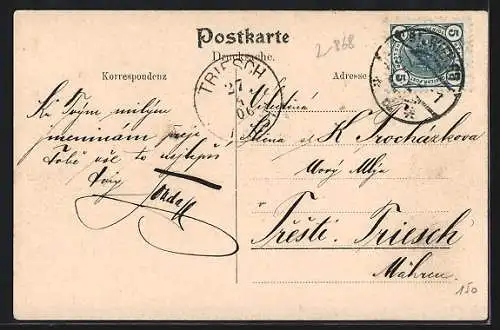 Postkarte
Drucksache.
2-868
Korrespondenz
Adresse
TRIESCH
27
4
06
5
5
1
K Tvým milým
jmeninám přeje
Tobě vše to nejlepší
Tvůj
Ctěná
Slečna
K Procházkova
Nový Mlýn
Třešti. Triesch
Mähren.
150